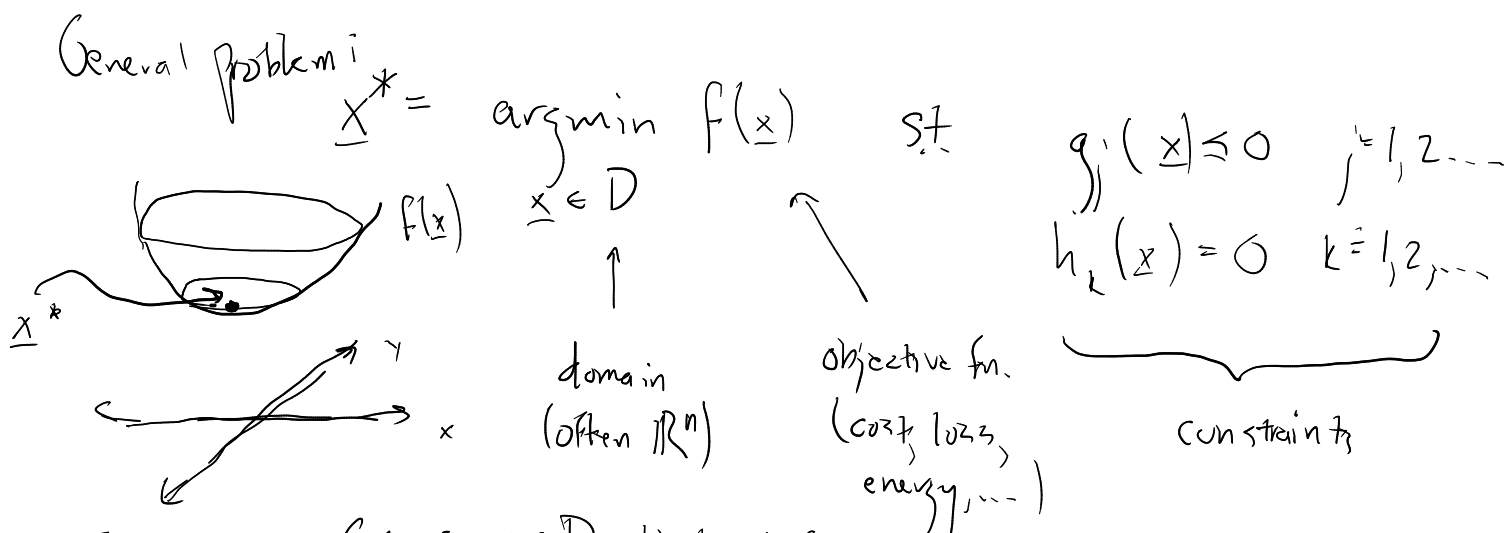 General problem:
x* = argmin f(x) st g_j(x) ≤ 0 j = 1, 2 ....
x ∈ D
h_k(x) = 0 k = 1, 2, ....
f(x)
x*
y
x
domain
(often ℝⁿ)
objective fn.
(cost, loss,
energy, ....)
constraints